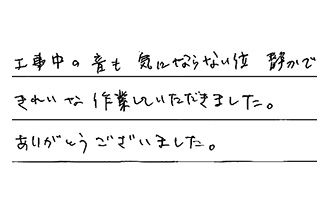 工事中の音も 気にならない位 静かで
きれいな作業していただきました。
ありがとうございました。